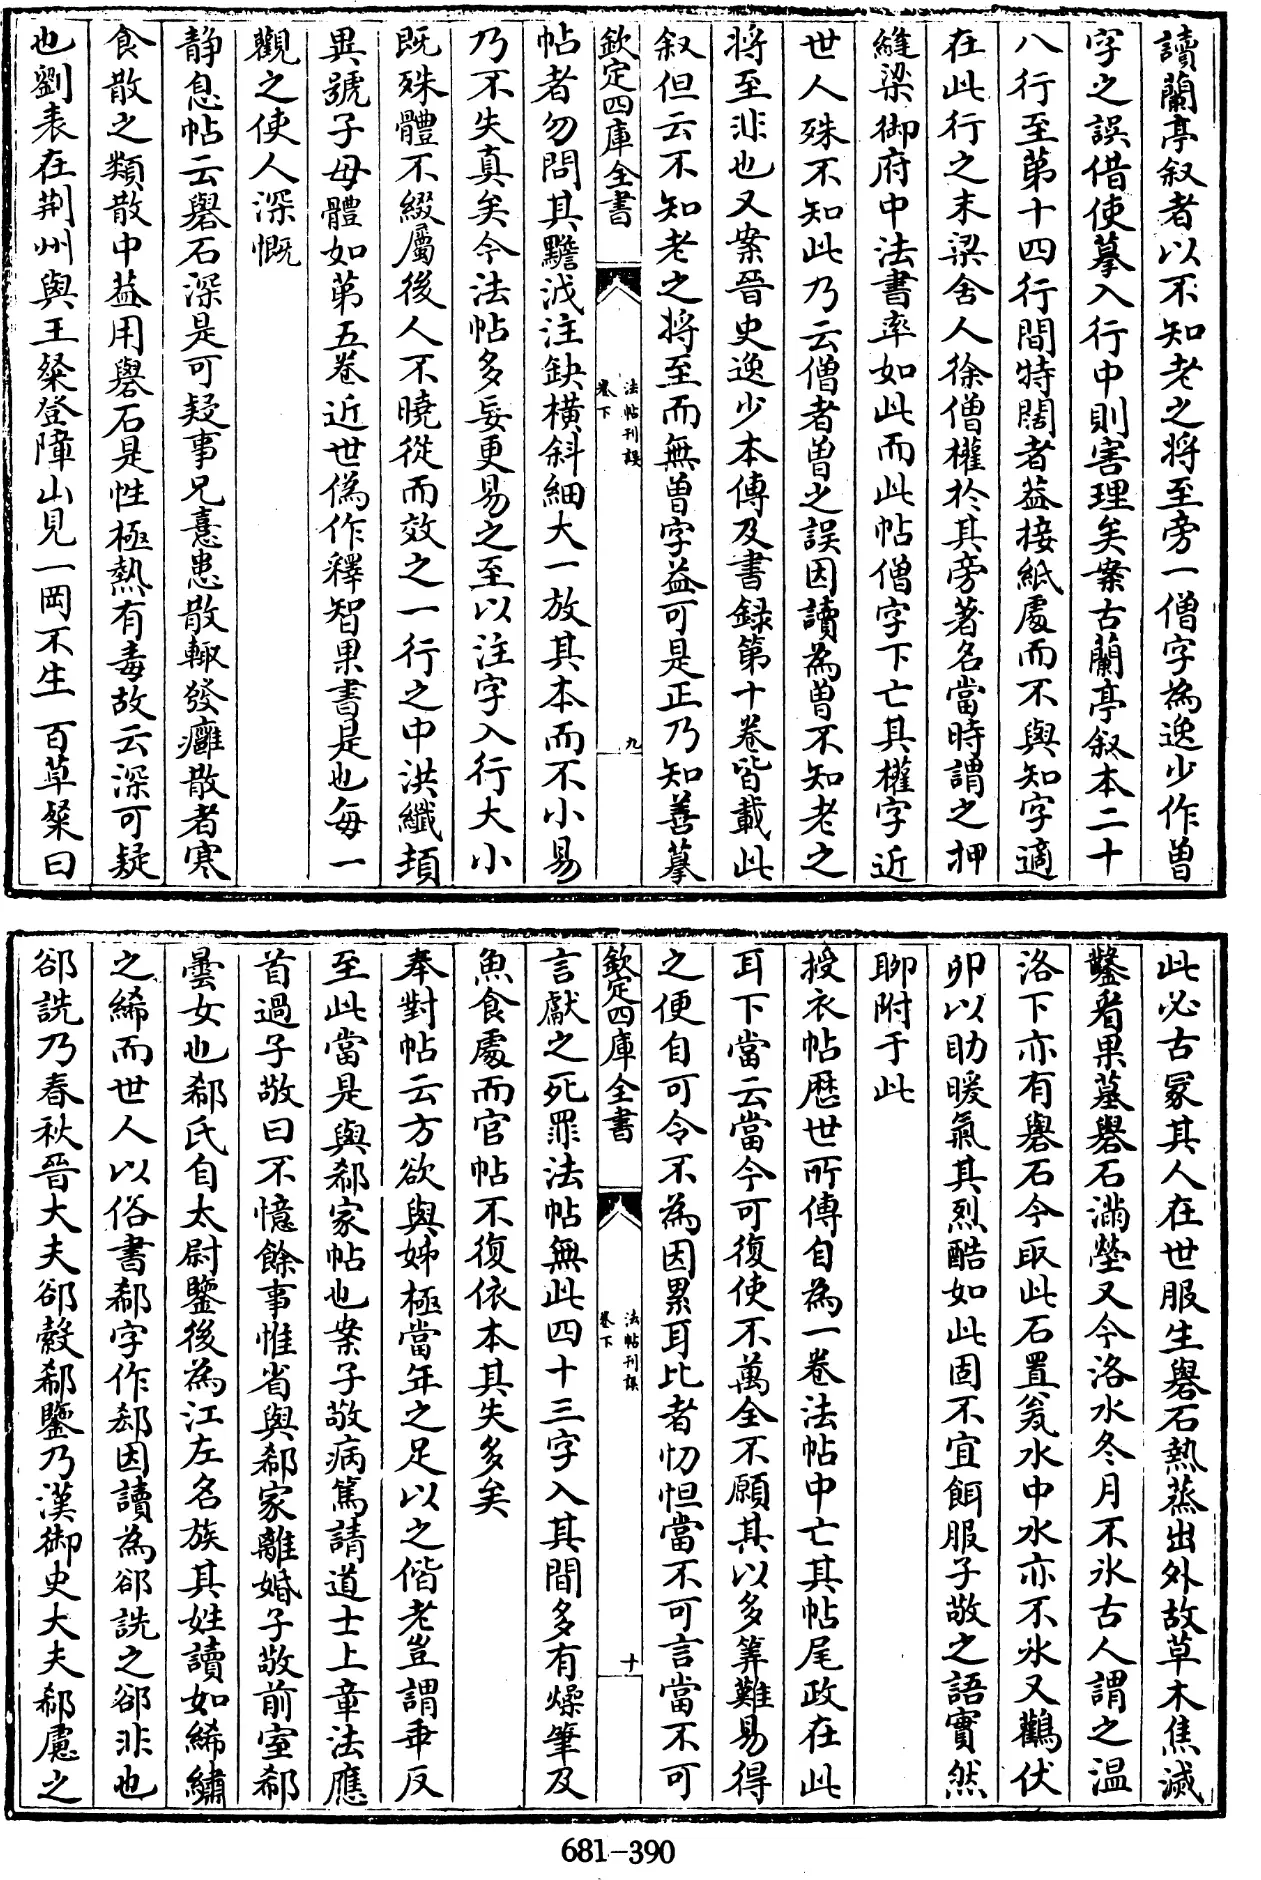 讀蘭亭叙者以不知老之將至旁一僧字為逸少作曽
字之誤借使摹入行中則害理矣案古蘭亭叙本二十
八行至第十四行間特闊者葢接紙處而不與知字適
在此行之末梁舍人徐僧權於其旁著名當時謂之押
縫梁御府中法書率如此而此帖僧字下亡其權字近
世人殊不知此乃云僧者曽之誤因讀為曽不知老之
將至非也又案晉史逸少本傳及書錄第十卷皆載此
叙但云不知老之將至而無曽字益可是正乃知善摹
欽定四庫全書
法帖刋誤
卷下
九
帖者勿問其黵浅注缺橫斜細大一放其本而不小易
乃不失真矣今法帖多妄更易之至以注字入行大小
既殊體不綴屬後人不曉從而效之一行之中洪纖頓
異號子母體如第五卷近世偽作釋智果書是也每一
觀之使人深慨
靜息帖云礜石深是可疑事兄憙患散輙發癰散者寒
食散之類散中葢用礜石是性極熱有毒故云深可疑
也劉表在荆州與王粲登障山見一岡不生百草粲曰
此必古冡其人在世服生礜石熱蒸出外故草木焦滅
鑿看果墓礜石滿塋又今洛水冬月不氷古人謂之温
洛下亦有礜石今取此石置瓮水中水亦不氷又鸛伏
卵以助暖氣其烈酷如此固不宜餌服子敬之語實然
聊附于此
授衣帖歴世所傳自為一卷法帖中亡其帖尾政在此
耳下當云當今可復使不萬全不願其以多筭難易得
之便自可令不為因累耳比者忉怛當不可言當不可
欽定四庫全書
法帖刋誤
卷下
十
言獻之死罪法帖無此四十三字入其間多有燥筆及
魚食處而官帖不復依本其失多矣
奉對帖云方欲與姊極當年之足以之偕老豈謂乖反
至此當是與郗家帖也案子敬病篤請道士上章法應
首過子敬曰不憶餘事惟省與郗家離婚子敬前室郗
曇女也郗氏自太尉鑒後為江左名族其姓讀如絺繡
之絺而世人以俗書郗字作郄因讀為郤詵之郤非也
郤詵乃春秋晉大夫郤縠郗鑒乃漢御史大夫郗慮之
681-390